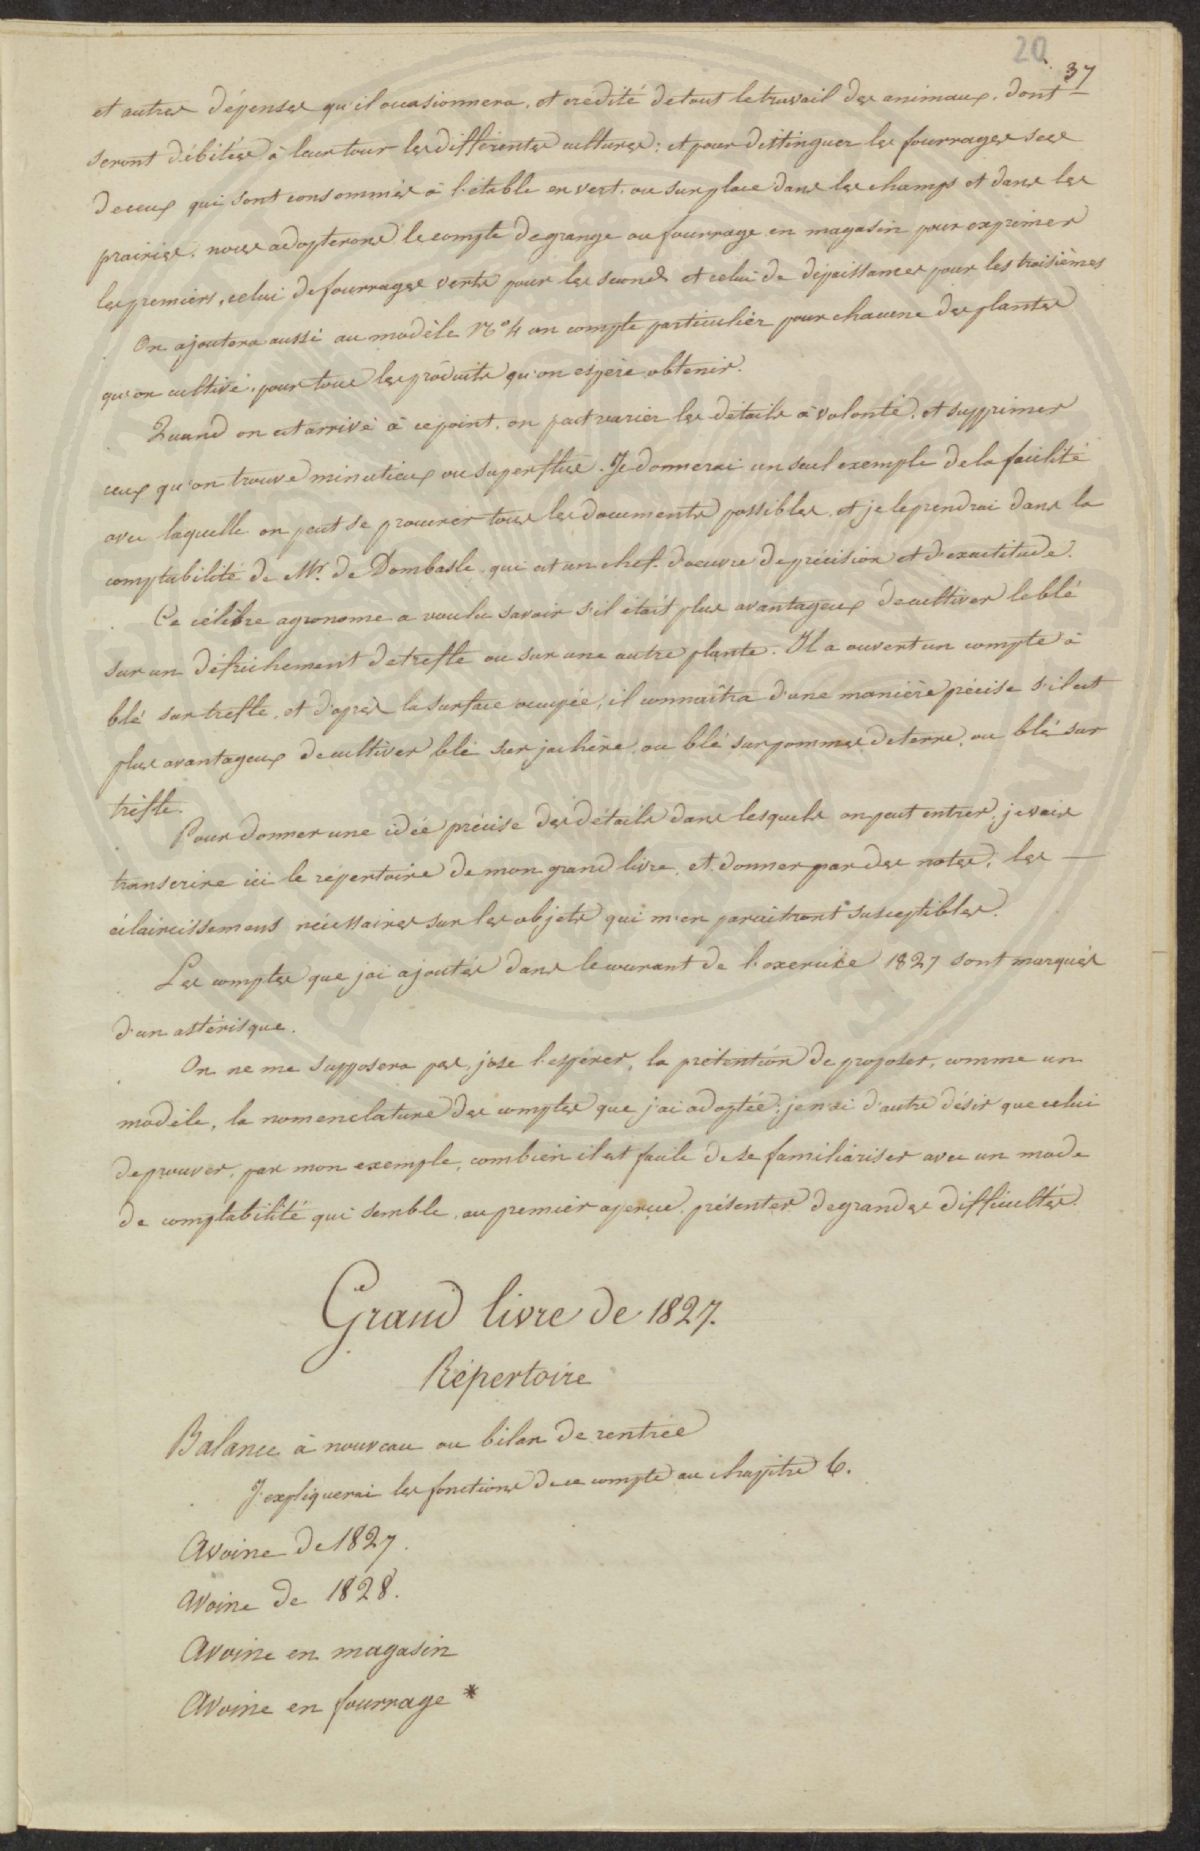 20
37
et autres dépenses qu'il occasionnera, et crédité de tout le travail des animaux, dont
seront débitées à leur tour les différentes cultures: et pour distinguer les fourrages secs
de ceux qui sont consommés à l'étable en vert, ou sur place dans les champs et dans les
prairies, nous adopterons le compte de grange ou fourrage en magasin pour exprimer
les premiers, celui de fourrages verts pour les seconds et celui de dépaissances pour les troisièmes
On ajoutera aussi au modèle N° 4 un compte particulier pour chacune des plantes
qu'on cultive, pour tous les produits qu'on espère obtenir.
Quand on est arrivé à ce point, on peut varier les détails à volonté, et supprimer
ceux qu'on trouve minutieux ou superflus. Je donnerai un seul exemple de la facilité
avec laquelle on peut se procurer tous les documents possibles, et je le prendrai dans la
comptabilité de Mr. de Dombasle, qui est un chef-d'oeuvre de précision et d'exactitude.
Ce célèbre agronome a voulu savoir s'il était plus avantageux de cultiver le blé
sur un défrichement de trefle ou sur une autre plante. Il a ouvert un compte à
blé sur trefle, et d'après la surface occupée, il connaîtra d'une manière précise s'il est
plus avantageux de cultiver blé sur jachère, ou blé sur pommes de terre, ou blé sur
trefle.
Pour donner une idée précise des détails dans lesquels on peut entrer, je vais
transcrire ici le répertoire de mon grand livre, et donner par des notes, les —
éclaircissemens nécessaires sur les objets qui m'en paraitront susceptibles.
Les comptes que j'ai ajoutés dans le courant de l'exercice 1827 sont marqués
d'un astérisque.
On ne me supposera pas, j'ose l'espérer, la prétention de proposer, comme un
modèle, la nomenclature des comptes que j'ai adoptée; je n'ai d'autre désir que celui
de prouver, par mon exemple, combien il est facile de se familiariser avec un mode
de comptabilité qui semble, au premier aperçu, présenter de grandes difficultés.
Grand livre de 1827.
Répertoire
Balance à nouveau ou bilan de rentrée
J'expliquerai les fonctions de ce compte au chapitre 6.
Avoine de 1827.
Avoine de 1828.
Avoine en magasin
Avoine en fourrage *